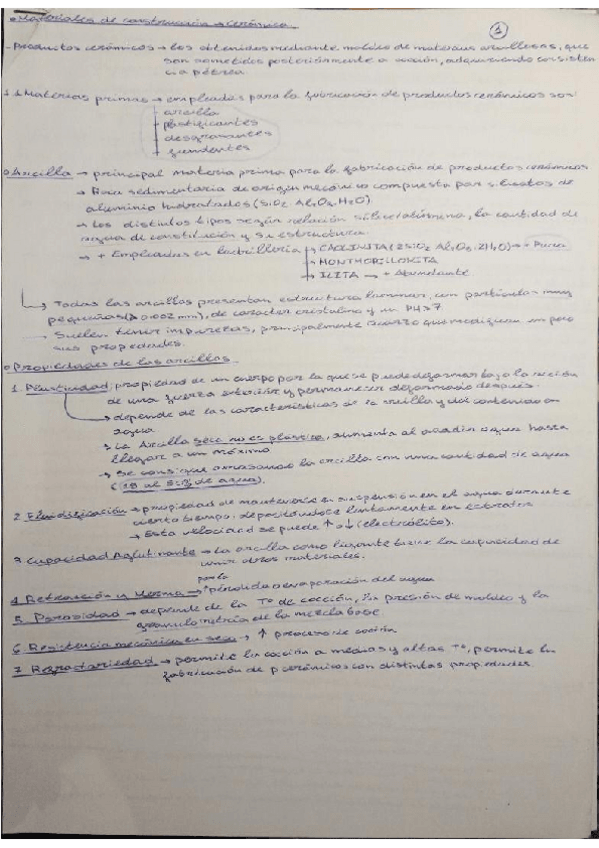 • Materiales de construcción → cerámica.
1
- Productos cerámicos → los obtenidos mediante moldeo de materias arcillosas, que
son sometidos posteriormente a cocción, adquiriendo consisten
cia pétrea
1.1 Materias primas → empleadas para la fabricación de productos cerámicos son
arcilla
plastificantes
desgrasantes
fundentes
o Arcilla → principal materia prima para la fabricación de productos cerámicos
→ Roca sedimentaria de origen mecánico compuesta por silicatos de
aluminio hidratados (SiO2 Al2O3 H2O)
→ Los distintos tipos según relación sílice/alúmina, la cantidad de
agua de constitución y su estructura.
→ + Empleadas en ladrillería → CAOLINITA (2SiO2 Al2O3 2H2O) → + Pura
→ MONTMORILLONITA
→ ILITA → + Abundante
→ Todas las arcillas presentan estructura laminar, con partículas muy
pequeñas ( 0.002 mm), de carácter cristalino y un PH>7
- Suelen tener impurezas, principalmente cuarzo que modifican un poco
sus propiedades.
o Propiedades de las arcillas
1. Plasticidad: propiedad de un cuerpo por la que se puede deformar bajo la acción
de una fuerza exterior y permanecer deformado después.
→ depende de las características de la arcilla y del contenido en
agua
→ La Arcilla seca no es plástica, aumenta al añadir agua hasta
llegar a un máximo
→ Se consigue amasando la arcilla con una cantidad de agua
( al % de agua).
2 Fluidificación → propiedad de mantenerse en suspensión en el agua durante
cierto tiempo, depositándose lentamente en estratos
→ Esta velocidad se puede ↑ o ↓ (electrólito).
3 Capacidad Aglutinante → La arcilla como ligante tiene la capacidad de
unir otros materiales.
4 Retracción y Merma → por la pérdida o evaporación del agua
5. Porosidad → depende de la Tº de cocción, la presión de moldeo y la
granulometría de la mezcla base.
6 Resistencia mecánica en seco → ↑ proceso de cocción
7 Refractariedad → permite la cocción a medias y altas Tº, permite la
fabricación de p cerámicos con distintas propiedades.